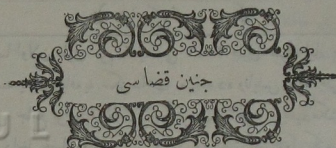 جنين قضاسى